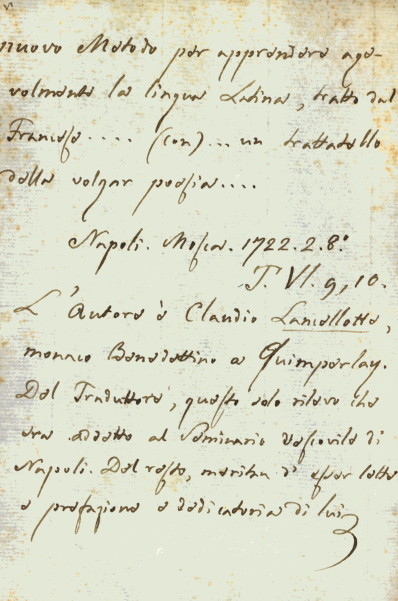 nuovo Metodo per apprendere age-
volmente la lingua Latina, tratto dal
Francese.... (con)... un trattatello
della volgar poesia....
Napoli. Mosca. 1722. 2. 8º.
T. VI. 9, 10.
L'Autore è Claudio Lancellotto,
monaco Benedettino a Quimperlay.
Del Traduttore, questo solo rilevo che
era addetto al Seminario Vescovile di
Napoli. Del resto, meritan d'esser lette
e prefazione e dedicatoria di lui